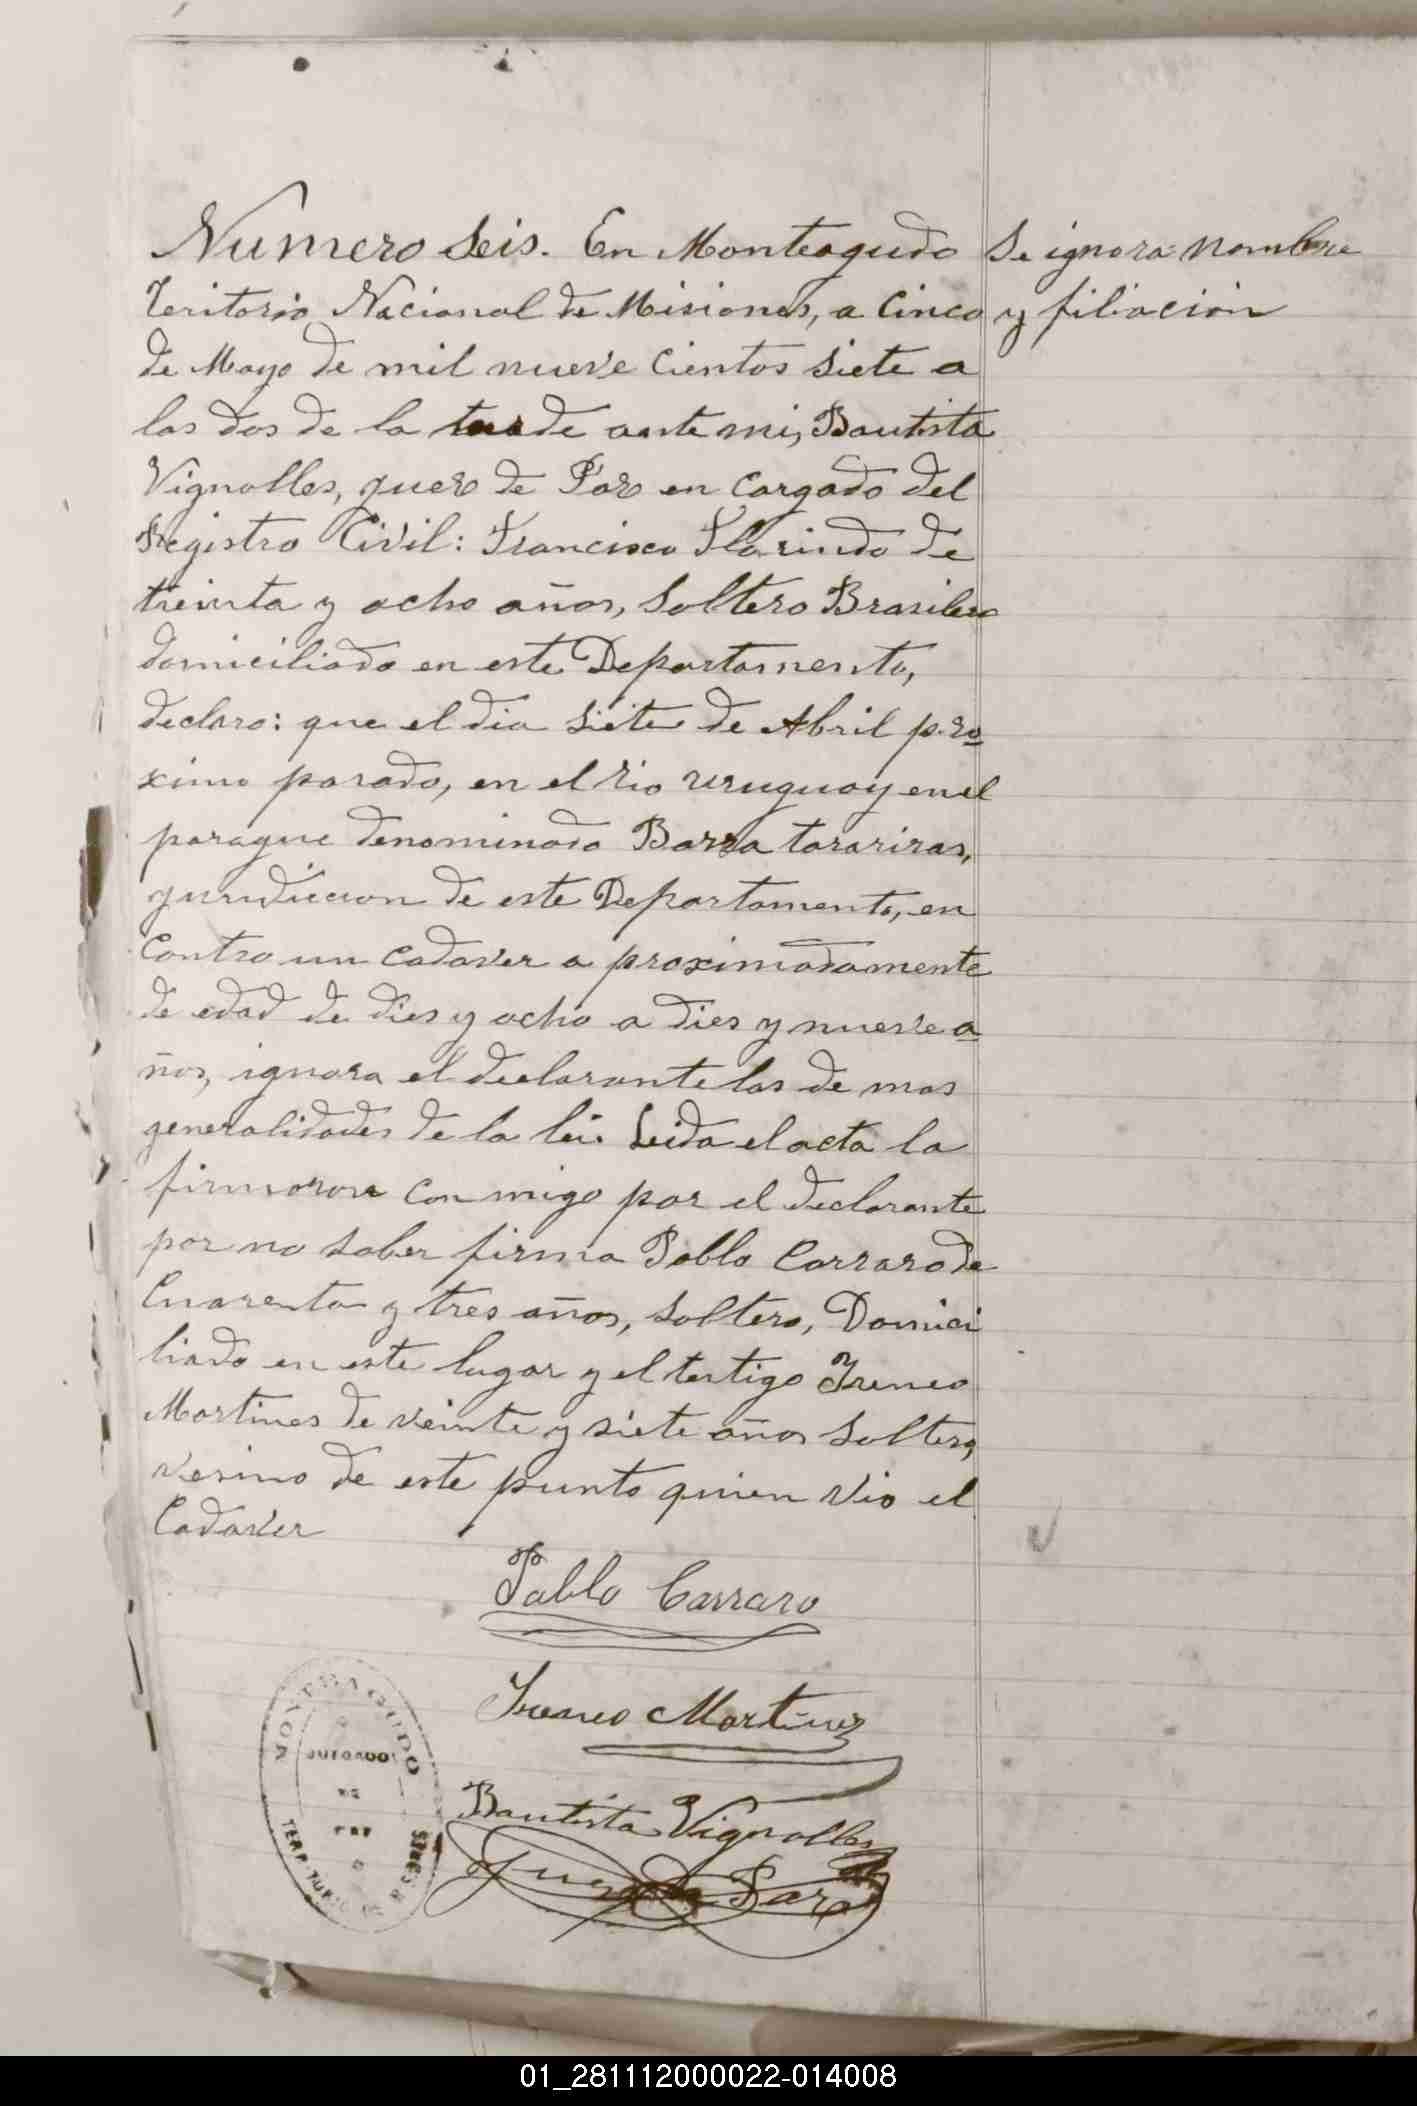 Numero Seis. En Monteagudo
Teritorio Nacional de Misiones, a Cinco
de Mayo de mil nueve Cientos Siete a
las dos de la tarde ante mi, Bautista
Vignolles, Juez de Paz en cargado del
Registro Civil: Francisco Florindo de
treinta y ocho años, Soltero Brasilero
domiciliado en este Departamento,
declaro: que el dia Siete de Abril pro
ximo pasado, en el Rio Uruguay en el
parague denominado Barra tarariras,
juridicion de este Departamento, en
Contro un Cadaver a proximadamente
de edad de dies y ocho a dies y nueve a
ños, ignora el declarante las de mas
generalidades de la lei. Leida el acta la
firmaron con migo por el declarante
por no saber firma Pablo Carraro de
Cuarenta y tres años, Soltero, Domici
liado en este lugar y el testigo Ireneo
Martines de veinte y siete años Soltero,
vesino de este punto quien vio el
Cadaver
Se ignora nombre
y filiación
Pablo Carraro
Ireneo Martinez
Bautista Vignolles
Juez de Paz
MONTEAGUDO
JUZGADO
DE
PAZ
TERRITORIO DE MISIONES
01_281112000022-014008